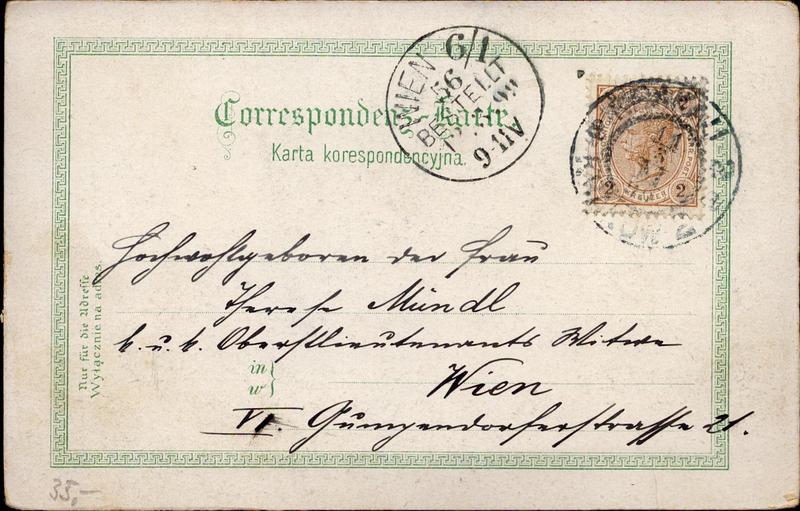 WIEN 6/1
56
BESTELLT
9·11V
Correspondenz-Karte.
Karta korespondencyjna.
2 KREUZER 2
Hochwohlgeboren der Frau
Therese Mündl
k. u. k. Oberstlieutenants Witwe
in
w
Wien
VI. Gumpendorferstrasse 21.
Nur für die Adresse
Wyłącznie na adres.
35,-